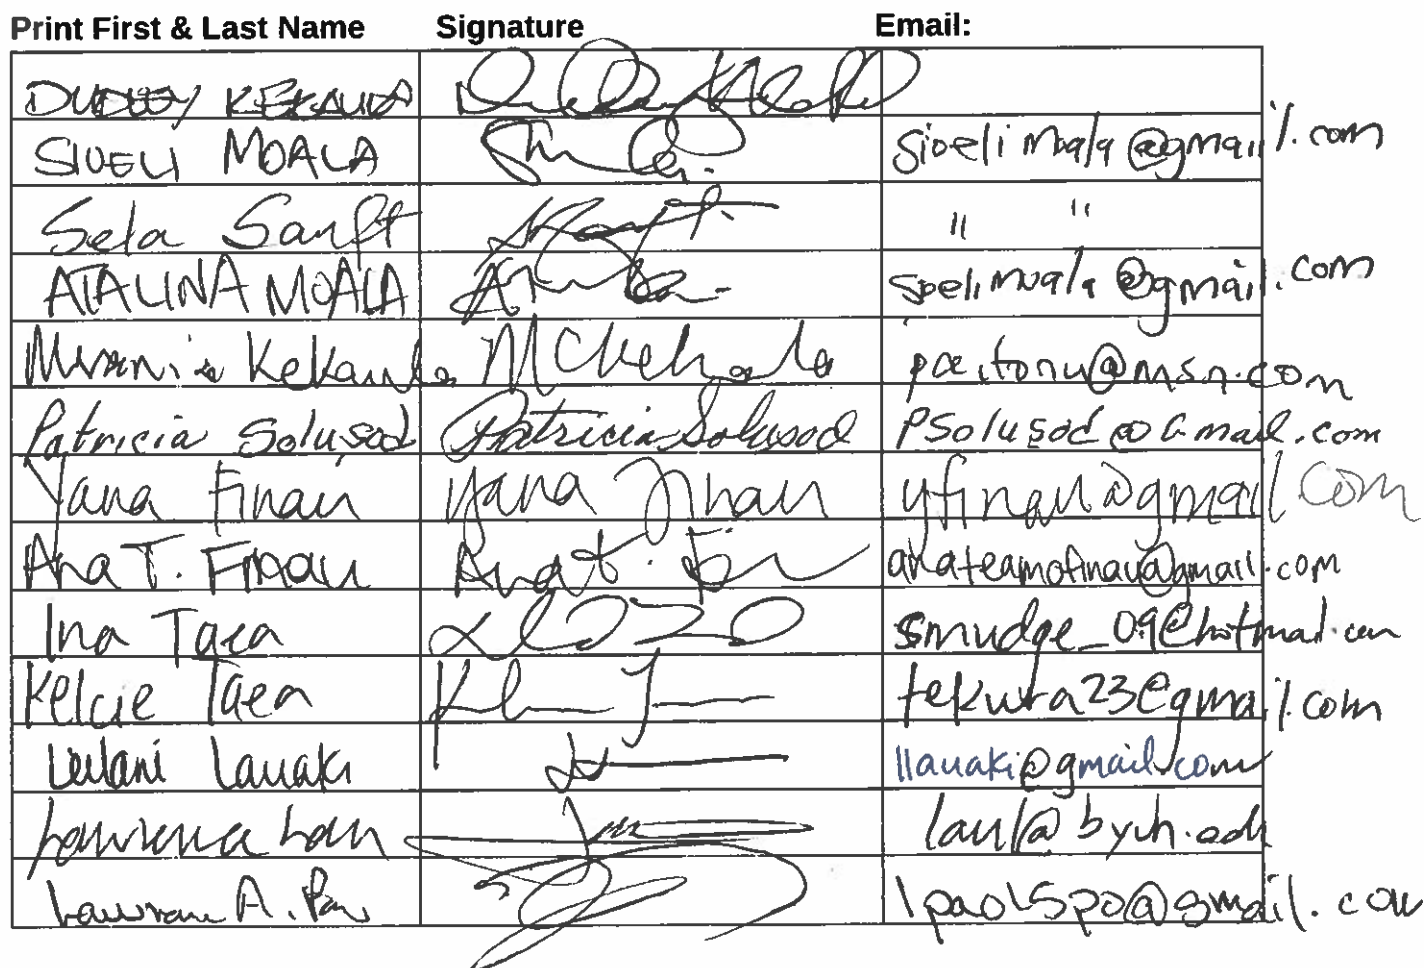 Print First & Last Name Signature Email:
DUDLEY KEKAULA
SIOELI MOALA sioelimoala@gmail.com
Sela Sanft " "
ATALINA MOALA sioelimoala@gmail.com
Kekaula paeitonu@msn.com
Patricia Solusod Patricia Solusod PSolusod@Gmail.com
Yana Finau Yana Finau yfinau@gmail.com
Ana T. Finau Ana t. anateamofinau@gmail.com
Ina Taea smudge_09@hotmail.com
Kelcie Taea tekura23@gmail.com
Leilani Lauaki llauaki@gmail.com
Lawrence Lau laul@byuh.edu
Lawrence A. Pao lpao15po@gmail.com